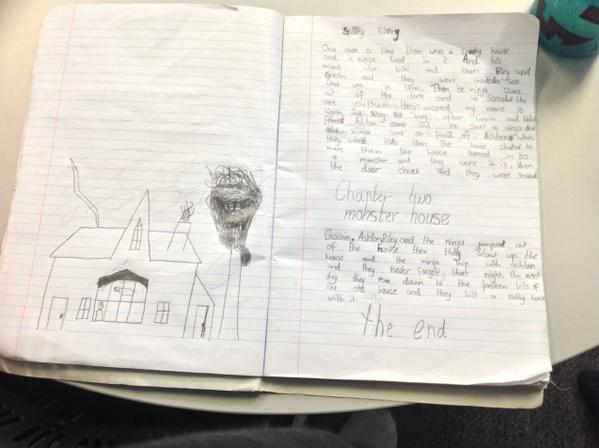 Spooky Story
Once apon a time there was a spooky house
and a ninja lived in it And his
name was and then Riley and
Gravin and they went inside to see
what was in there. Then the ninja came
out of the dark and he Screamed like
are you they my name is
and Riley Not long after Gravin and
Ashton came and he saw a ninja and
ninja came in front of Ashton when
they were kids then the house started to
move then the house turned in to
a monster and they were in it, then
the door shoed and they were
Chapter two
monster house
Gravin, Ashton, Riley and the ninja jumped out
of the house then they blow up the
house and the ninja live with ashton
and they never forget that night, the next
day they row down to the broken bits of
the old house and they bilt a house
with it.
the end